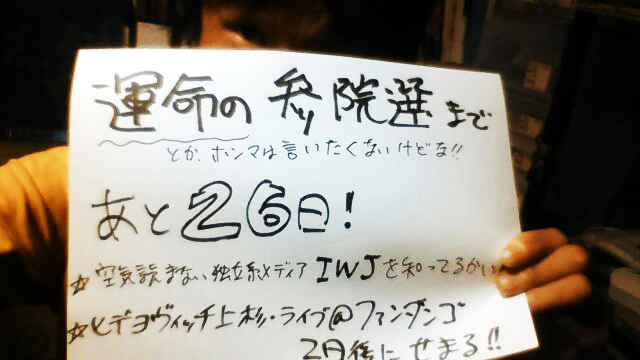 運命の参院選まで
とか、ホンマは言いたくないけどな!!
あと26日!
☆空気読まない独立系メディア IWJを知ってるかい
☆ヒデヨヴィッチ上杉・ライブ@ファンダンゴ
2日後にせまる!!